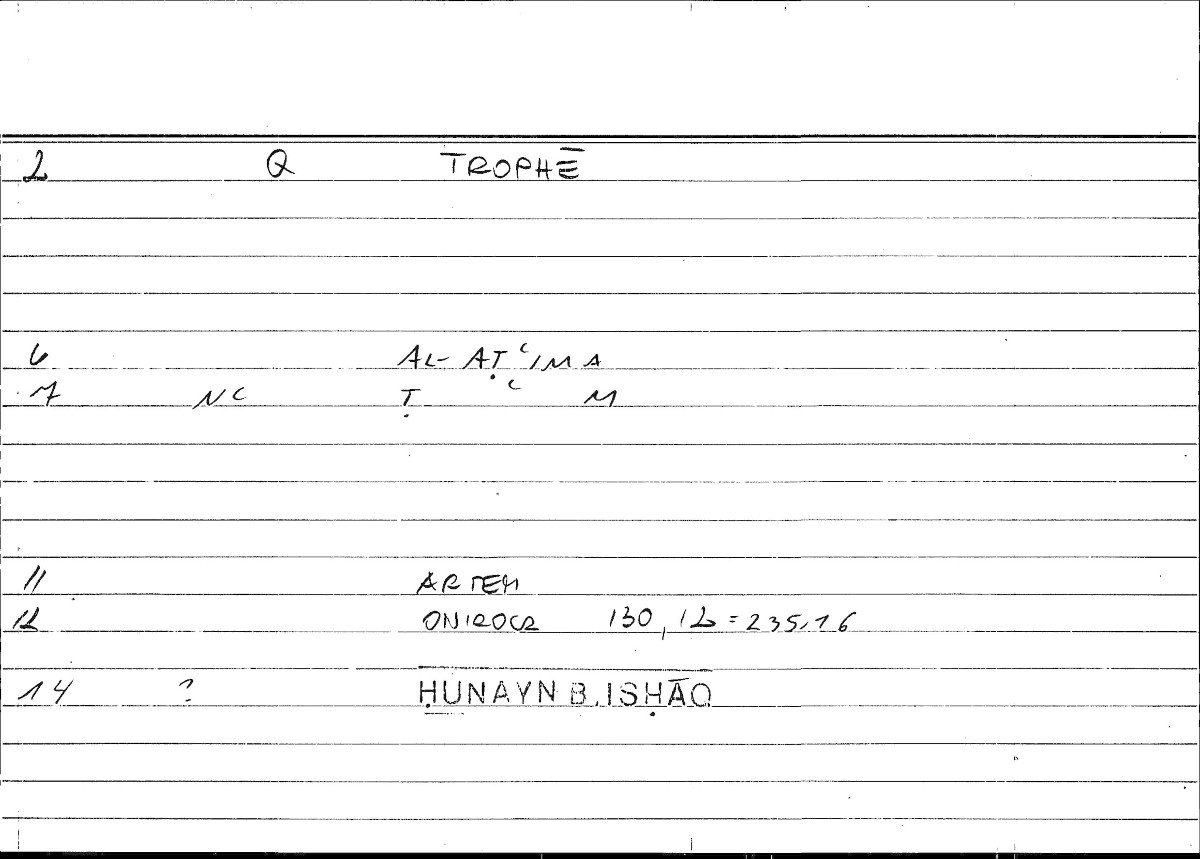 2 Q TROPHĒ
6 AL-AṬʿIMA
7 NC Ṭ ʿ M
11 ARTEM
12 ONIROCR 130,12=235,16
14 ? ḤUNAYN B. ISḤĀQ